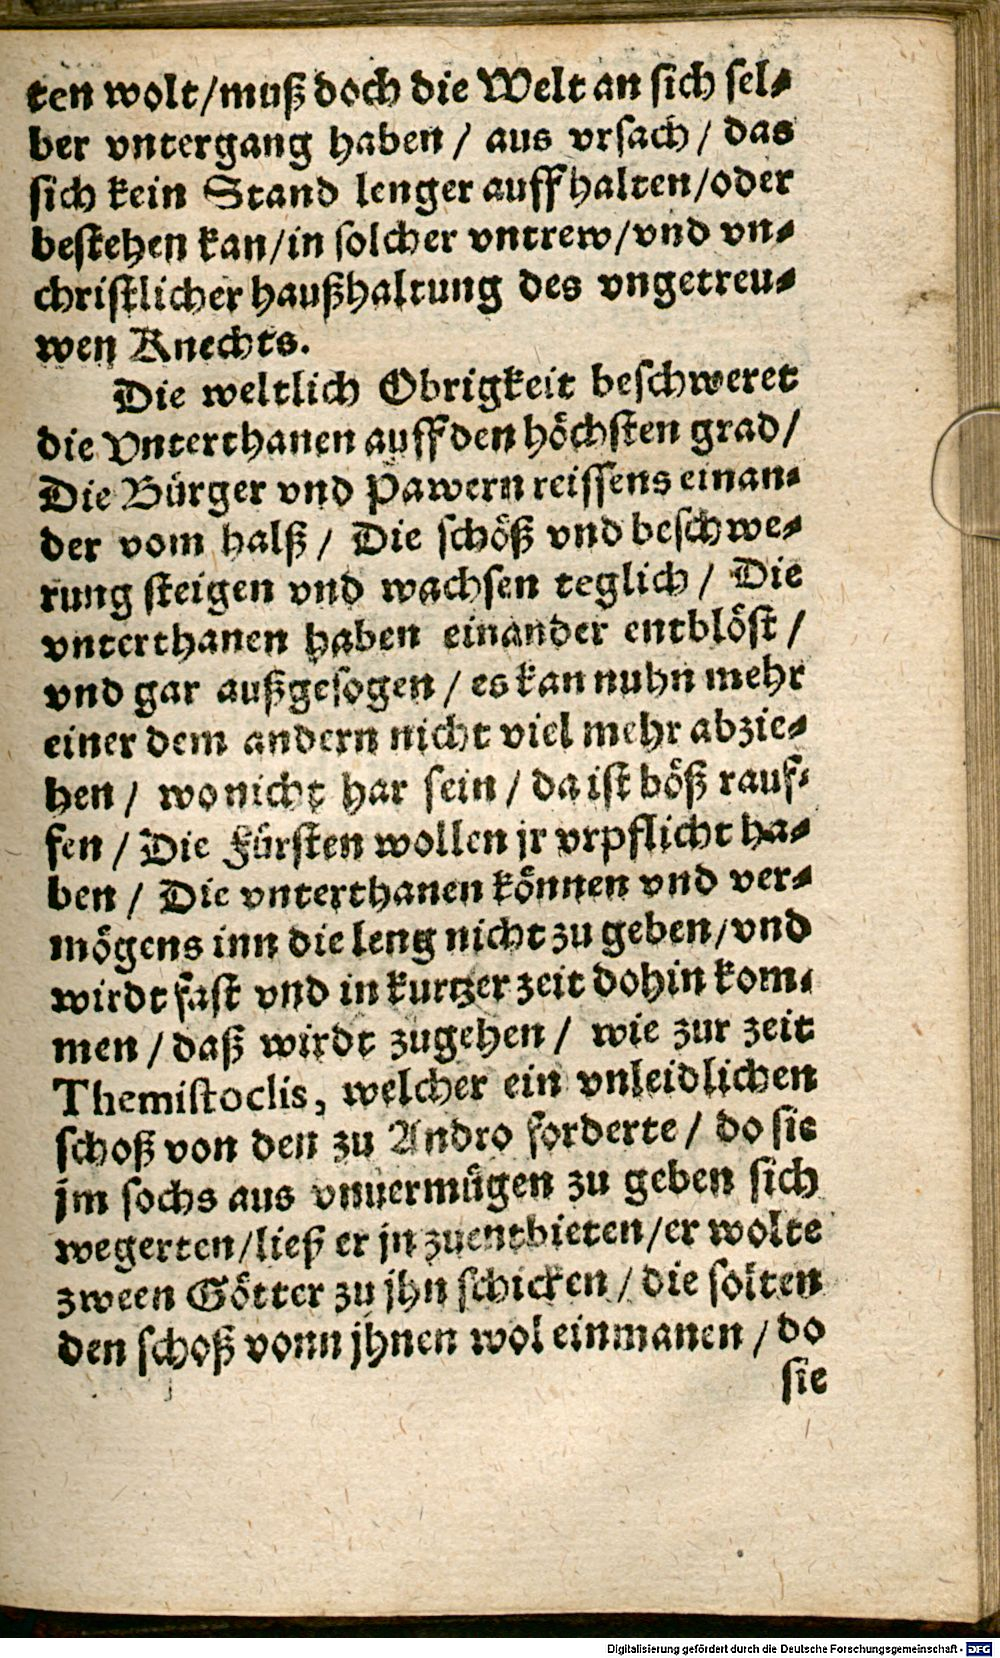 ten wolt/muß doch die Welt an sich sel-
ber vntergang haben / aus vrsach / das
sich kein Stand lenger auff halten/oder
bestehen kan/in solcher vntrew/vnd vn-
christlicher haußhaltung des vngetreu-
wen Knechts.
Die weltlich Obrigkeit beschweret
die Vnterthanen auff den höchsten grad/
Die Bürger vnd Pawern reissens einan-
der vom halß / Die schöß vnd beschwe-
rung steigen vnd wachsen teglich / Die
vnterthanen haben einander entblöst /
vnd gar außgesogen / es kan nuhn mehr
einer dem andern nicht viel mehr abzie-
hen / wo nicht har sein / da ist böß rauf-
fen / Die Fürsten wollen jr vrpflicht ha-
ben / Die vnterthanen können vnd ver-
mögens inn die leng nicht zu geben/vnd
wirdt fast vnd in kurtzer zeit dohin kom-
men / daß wirdt zugehen / wie zur zeit
Themistoclis, welcher ein vnleidlichen
schoß von den zu Andro forderte / do sie
jm sochs aus vnuermügen zu geben sich
wegerten/ließ er jn zuentbieten/er wolte
zween Götter zu jhn schicken / die solten
den schoß vonn jhnen wol einmanen / do
sie
Digitalisierung gefördert durch die Deutsche Forschungsgemeinschaft - DFG